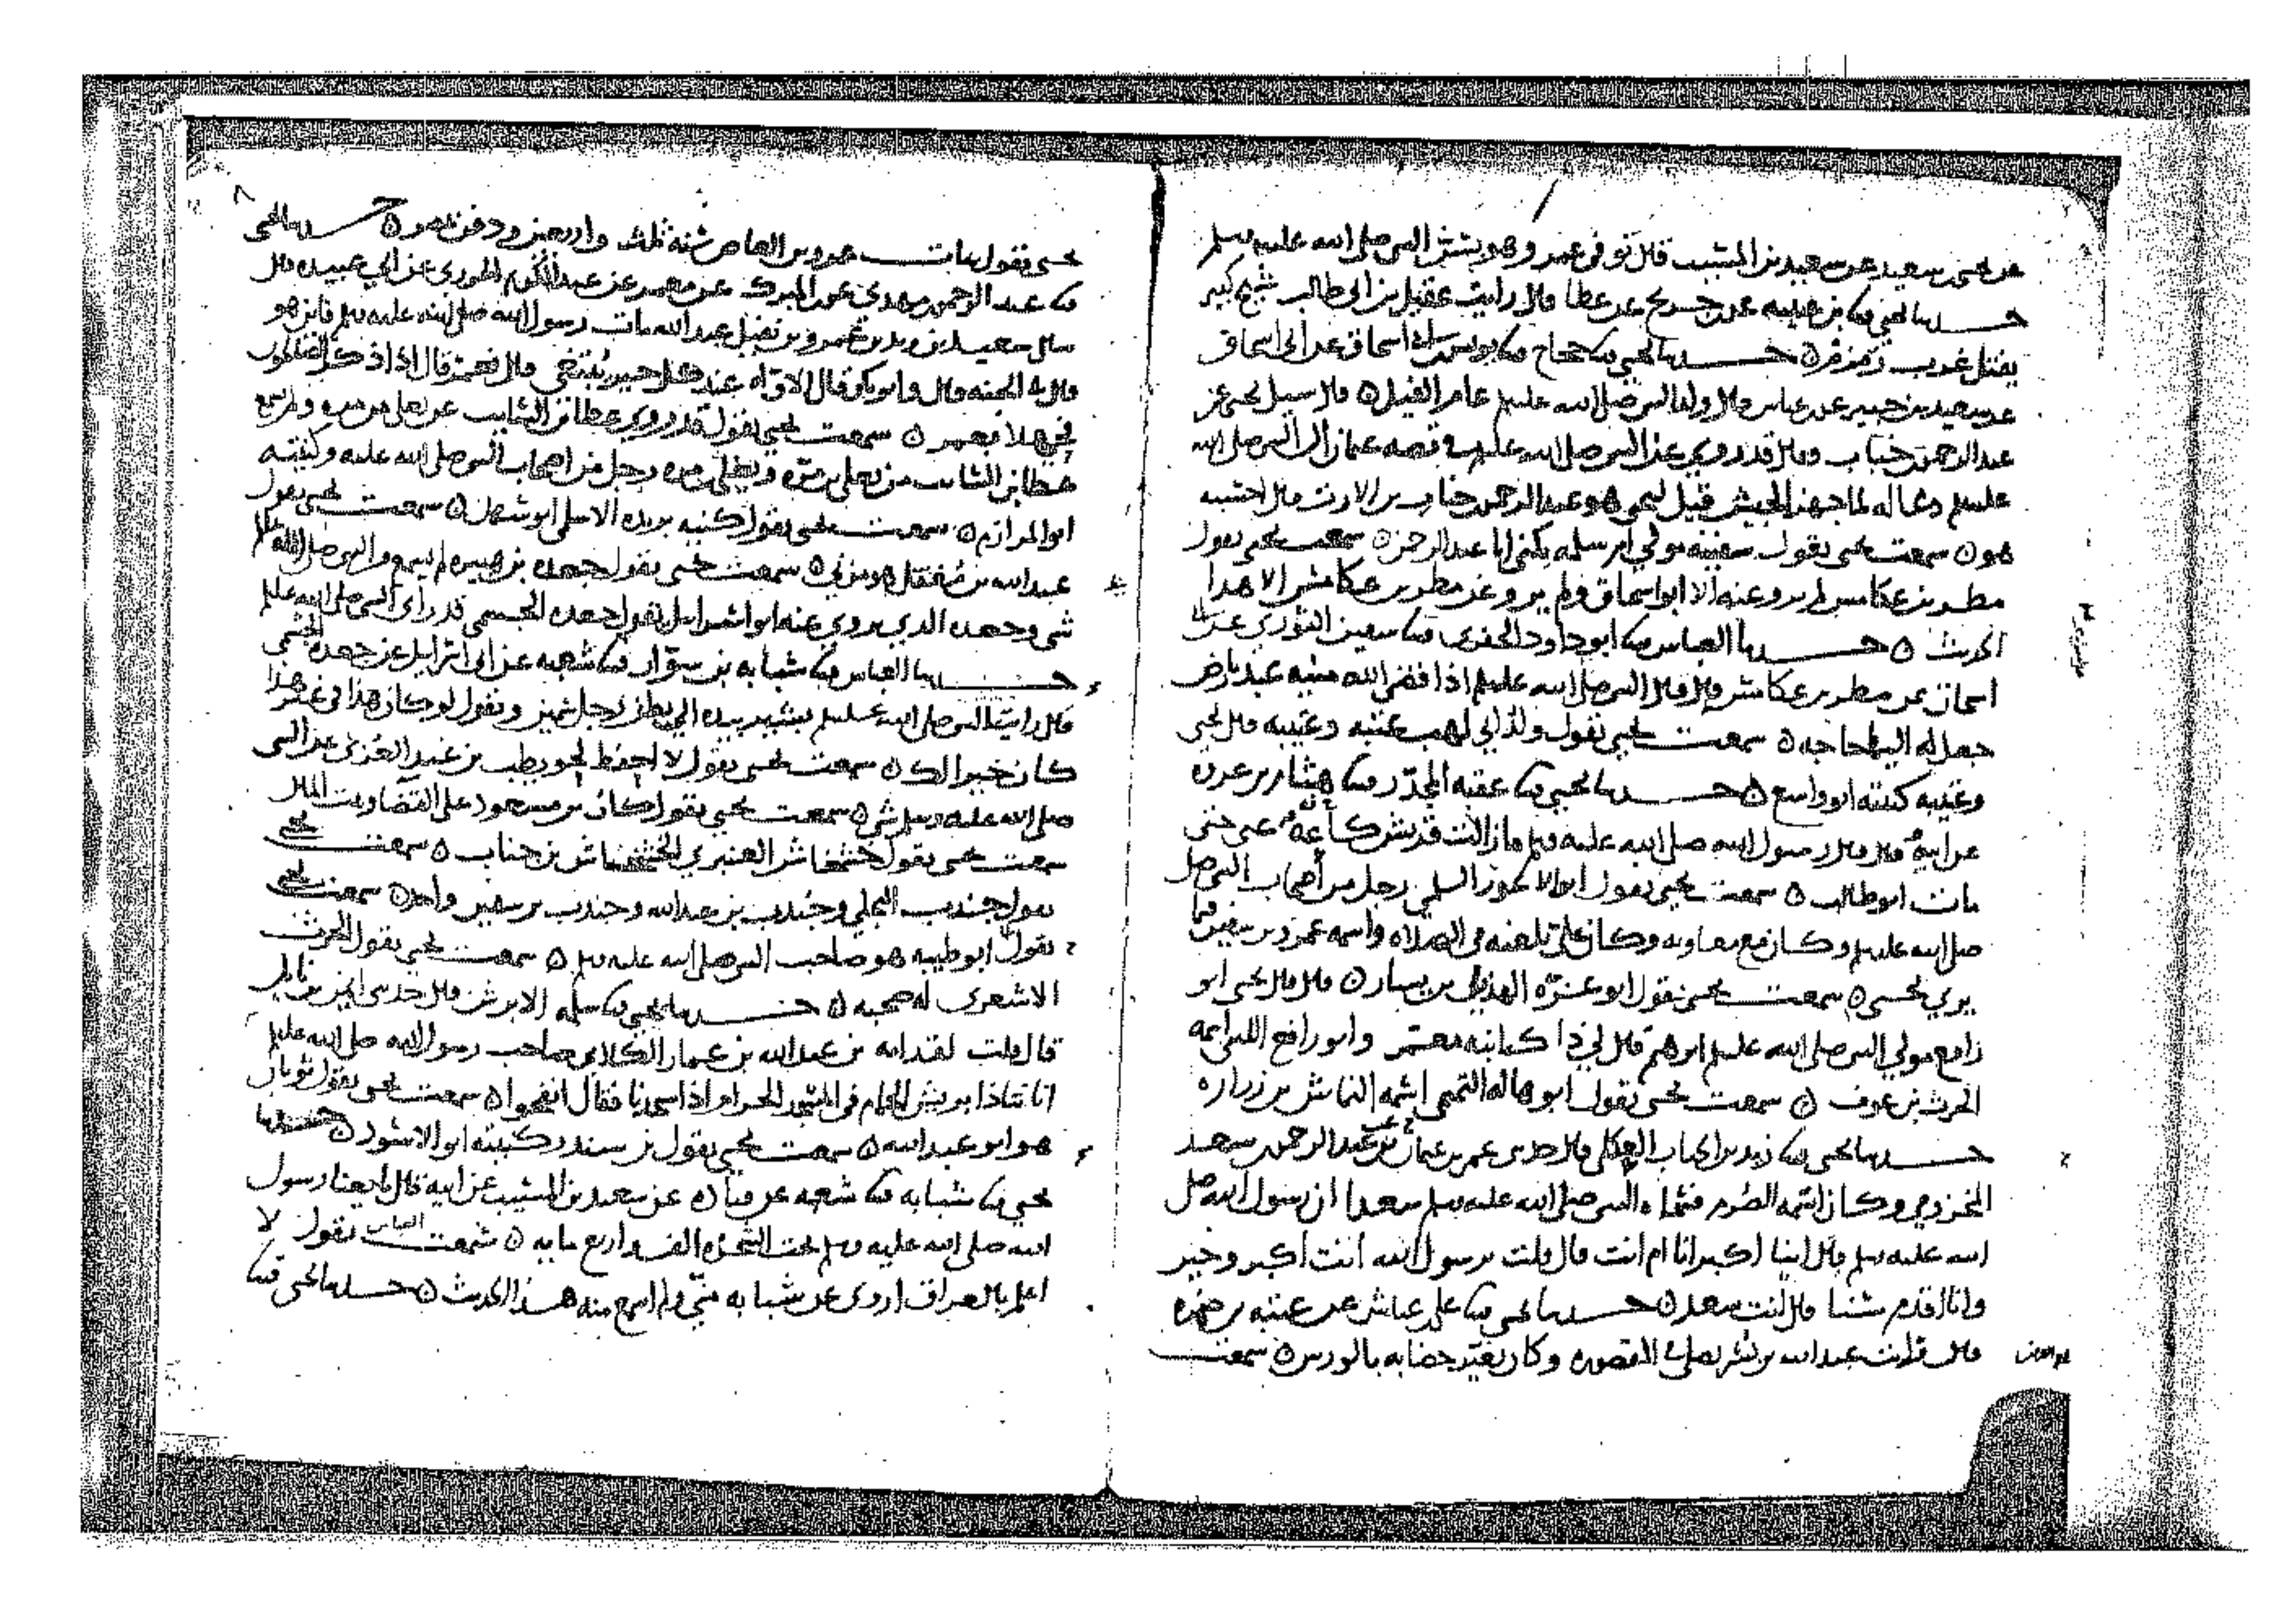 عن يحيى بن سعيد عن سعيد بن المسيب قال توفي عمر وهو بسن النبي صلى الله عليه وسلم
حدثنا يحيى ثنا بن عيينه عن بن جريج عن عطا قال رايت عقيل بن ابي طالب شيخ كبير
يفتل غرب زمزم ه حدثنا يحيى ثنا حجاج ثنا يونس بن ابي اسحاق عن ابي اسحاق
عن سعيد بن جبير عن بن عباس قال ولد النبي صلى الله عليه وسلم عام الفيل ه قال سيل يحيى عن
عبد الرحمن بن خباب وقال قد روي عن النبي صلى الله عليه وسلم في قصه عثمان ان النبي صلى الله
عليه وسلم دعا له لما جهز الجيش قيل ليحيى هو عبد الرحمن بن خباب بن الارت قال احسبه
هو ه سمعت يحيى يقول سفينه مولى ام سلمه يكنى ابا عبد الرحمن ه سمعت يحيى يقول
مطر بن عكامس لم يرو عنه الا ابو اسحاق ولم يرو عن مطر بن عكامس الا هذا
الحديث ه حدثنا العباس ثنا ابو داود الحفري ثنا سفين الثوري عن ابي
اسحاق عن مطر بن عكامس قال قال النبي صلى الله عليه وسلم اذا قضى الله منيه عبد بارض
جعل له اليها حاجه ه سمعت يحيى يقول ولد ابي لهب عتبه وعتيبه قال يحيى
وعتيبه كنيته ابو واسع ه حدثنا يحيى ثنا عقبه المجدر ثنا هشام بن عروه
عن ابيه قال قال رسول الله صلى الله عليه وسلم ما زالت قريش كاعه عني حتى
مات ابو طالب ه سمعت يحيى يقول ابو الاعور السلمي رجل من أصحاب النبي صلى
الله عليه وسلم وكان مع معاويه وكان علي يلعنه في الصلاه واسمه عمرو بن سفين فيما
يرى يحيى ه سمعت يحيى يقول ابو عزه الهذلي بن يسار ه قال قال يحيى ابو
رافع مولى النبي صلى الله عليه وسلم ابرهيم قال لي ذا كتابه معتمر وابو رافع
الحرث بن عوف ه سمعت يحيى يقول ابو هاله التميمي اسمه النباش بن زراره
حدثنا يحيى ثنا زيد بن الحباب العكلي قال حدثني عمر بن عثمان بن عبد الرحمن بن سعيد
المخزومي وكان اسمه الصرم فسماه النبي صلى الله عليه وسلم سعيدا ان رسول الله صلى
الله عليه وسلم قال اينا اكبر انا ام انت قال قلت يرسول الله أنت أكبر وخير
وانا اقدم سنا قال أنت سعيد ه حدثنا يحيى ثنا علي بن عياش عن عتبه بن ضمره
قال رايت عبد الله بن بسر يصلي في المقصوره وكان يغير خضابه بالورس ه سمعت
يحيى يقول مات عمرو بن العاص سنة ثلث واربعين ودفن بمصر ه حدثنا يحيى
ثنا عبد الرحمن بن مهدي عن بن المبرك عن معمر عن عبد الكريم الجزري عن ابي عبيده قال
سال سعيد بن زيد بن عمرو بن نفيل عبد الله مات رسول الله صلى الله عليه وسلم فاين هو
قال في الجنه قال وابو بكر قال الاواه عند كل خير يبتغى قال فعمر قال اذا ذكر الصالحون
فحيهلا بعمر ه سمعت يحيى يقول قد روى عطا بن السايب عن يعلى بن مره ولم يسمع
عطا بن السايب من يعلى بن مره ويعلى بن مره رجل من اصحاب النبي صلى الله عليه وكنيته
ابو المرازم ه سمعت يحيى يقول كنيه بريده الاسلمي ابو سهل ه سمعت يحيى يقول
عبد الله بن مغفل هو مزني ه سمعت يحيى يقول جعده بن هبيره لم يسمع من النبي صلى الله عليه وسلم
شي وجعده الذي يروي عنه ابو اسرايل يقول جعده الجشمي قد راى النبي صلى الله عليه وسلم
حدثنا العباس ثنا شبابه بن سوار ثنا شعبه عن ابي اسرايل عن جعده الجشمي
قال رايت النبي صلى الله عليه وسلم يشير بيده الى بطن رجل سمين ويقول لو كان هذا في غير هذا
كان خير الك ه سمعت يحيى يقول لا احفظ لحويطب بن عبد العزى عن النبي
صلى الله عليه وسلم شي ه سمعت يحيى يقول كان بن مسعود على القضا وبيت المال
سمعت يحيى يقول خشخاش العنبري الخشخاش بن جناب ه سمعت يحيى
يقول جندب البجلي وجندب بن عبد الله وجندب بن سفين واحد ه سمعت يحيى
يقول ابو طيبه هو صاحب النبي صلى الله عليه وسلم ه سمعت يحيى يقول الحرث
الاشعري له صحبه ه حدثنا يحيى ثنا سلمه الابرش قال حدثني ايمن بن نابل
قال قلت لقدامه بن عبد الله بن عمار الكلابي صاحب رسول الله صلى الله عليه وسلم
انا نتاذا بريش الحمام في المسجد الحرام اذا سجدنا فقال انفخوا ه سمعت يحيى يقول ثوبان
هو ابو عبد الله ه سمعت يحيى يقول بن سندر كنيته ابو الاسود ه حدثنا
يحيى ثنا شبابه ثنا شعبه عن قتاده عن سعيد بن المسيب عن ابيه قال بايعنا رسول
الله صلى الله عليه وسلم تحت الشجره الف واربع مايه ه سمعت العباس يقول لا
اعلم بالعراق اروى عن شبابه مني ولم اسمع منه هذا الحديث ه حدثنا يحيى ثنا